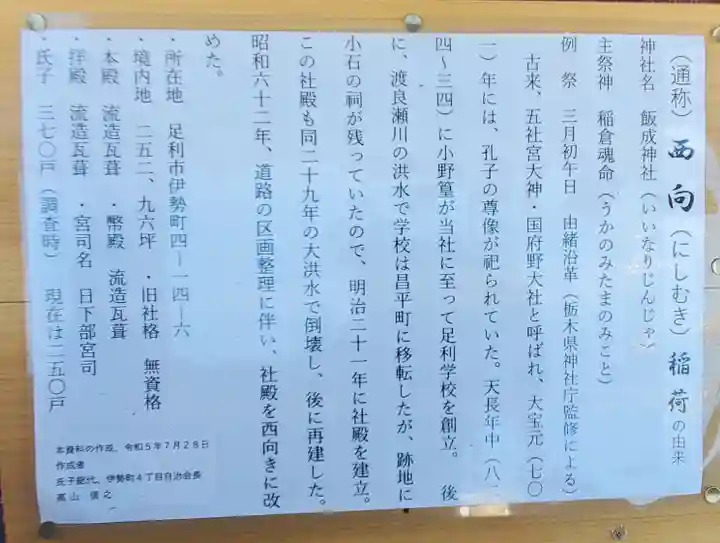 （通称）西向（にしむき）稲荷の由来
神社名　飯成神社（いいなりじんじゃ）
主祭神　稲倉魂命（うかのみたまのみこと）
例　祭　三月初午日　由緒沿革（栃木県神社庁監修による）
古来、五社宮大神・国府野大社と呼ばれ、大宝元（七〇
一）年には、孔子の尊像が祀られていた。天長年中（八二
四～三四）に小野篁が当社に至って足利学校を創立。　後
に、渡良瀬川の洪水で学校は昌平町に移転したが、跡地に
小石の祠が残っていたので、明治二十一年に社殿を建立。
この社殿も同二十九年の大洪水で倒壊し、後に再建した。
昭和六十二年、道路の区画整理に伴い、社殿を西向きに改
めた。
・所在地　足利市伊勢町四―一四―六
・境内地　二五二、九六坪　・旧社格　無資格
・本殿　流造瓦葺　・幣殿　流造瓦葺
・拝殿　流造瓦葺　・宮司名　日下部宮司
・氏子　三七〇戸（調査時）　現在は二五〇戸
本資料の作成、令和５年７月２８日
作成者
氏子総代、伊勢町４丁目自治会長
髙山　信之